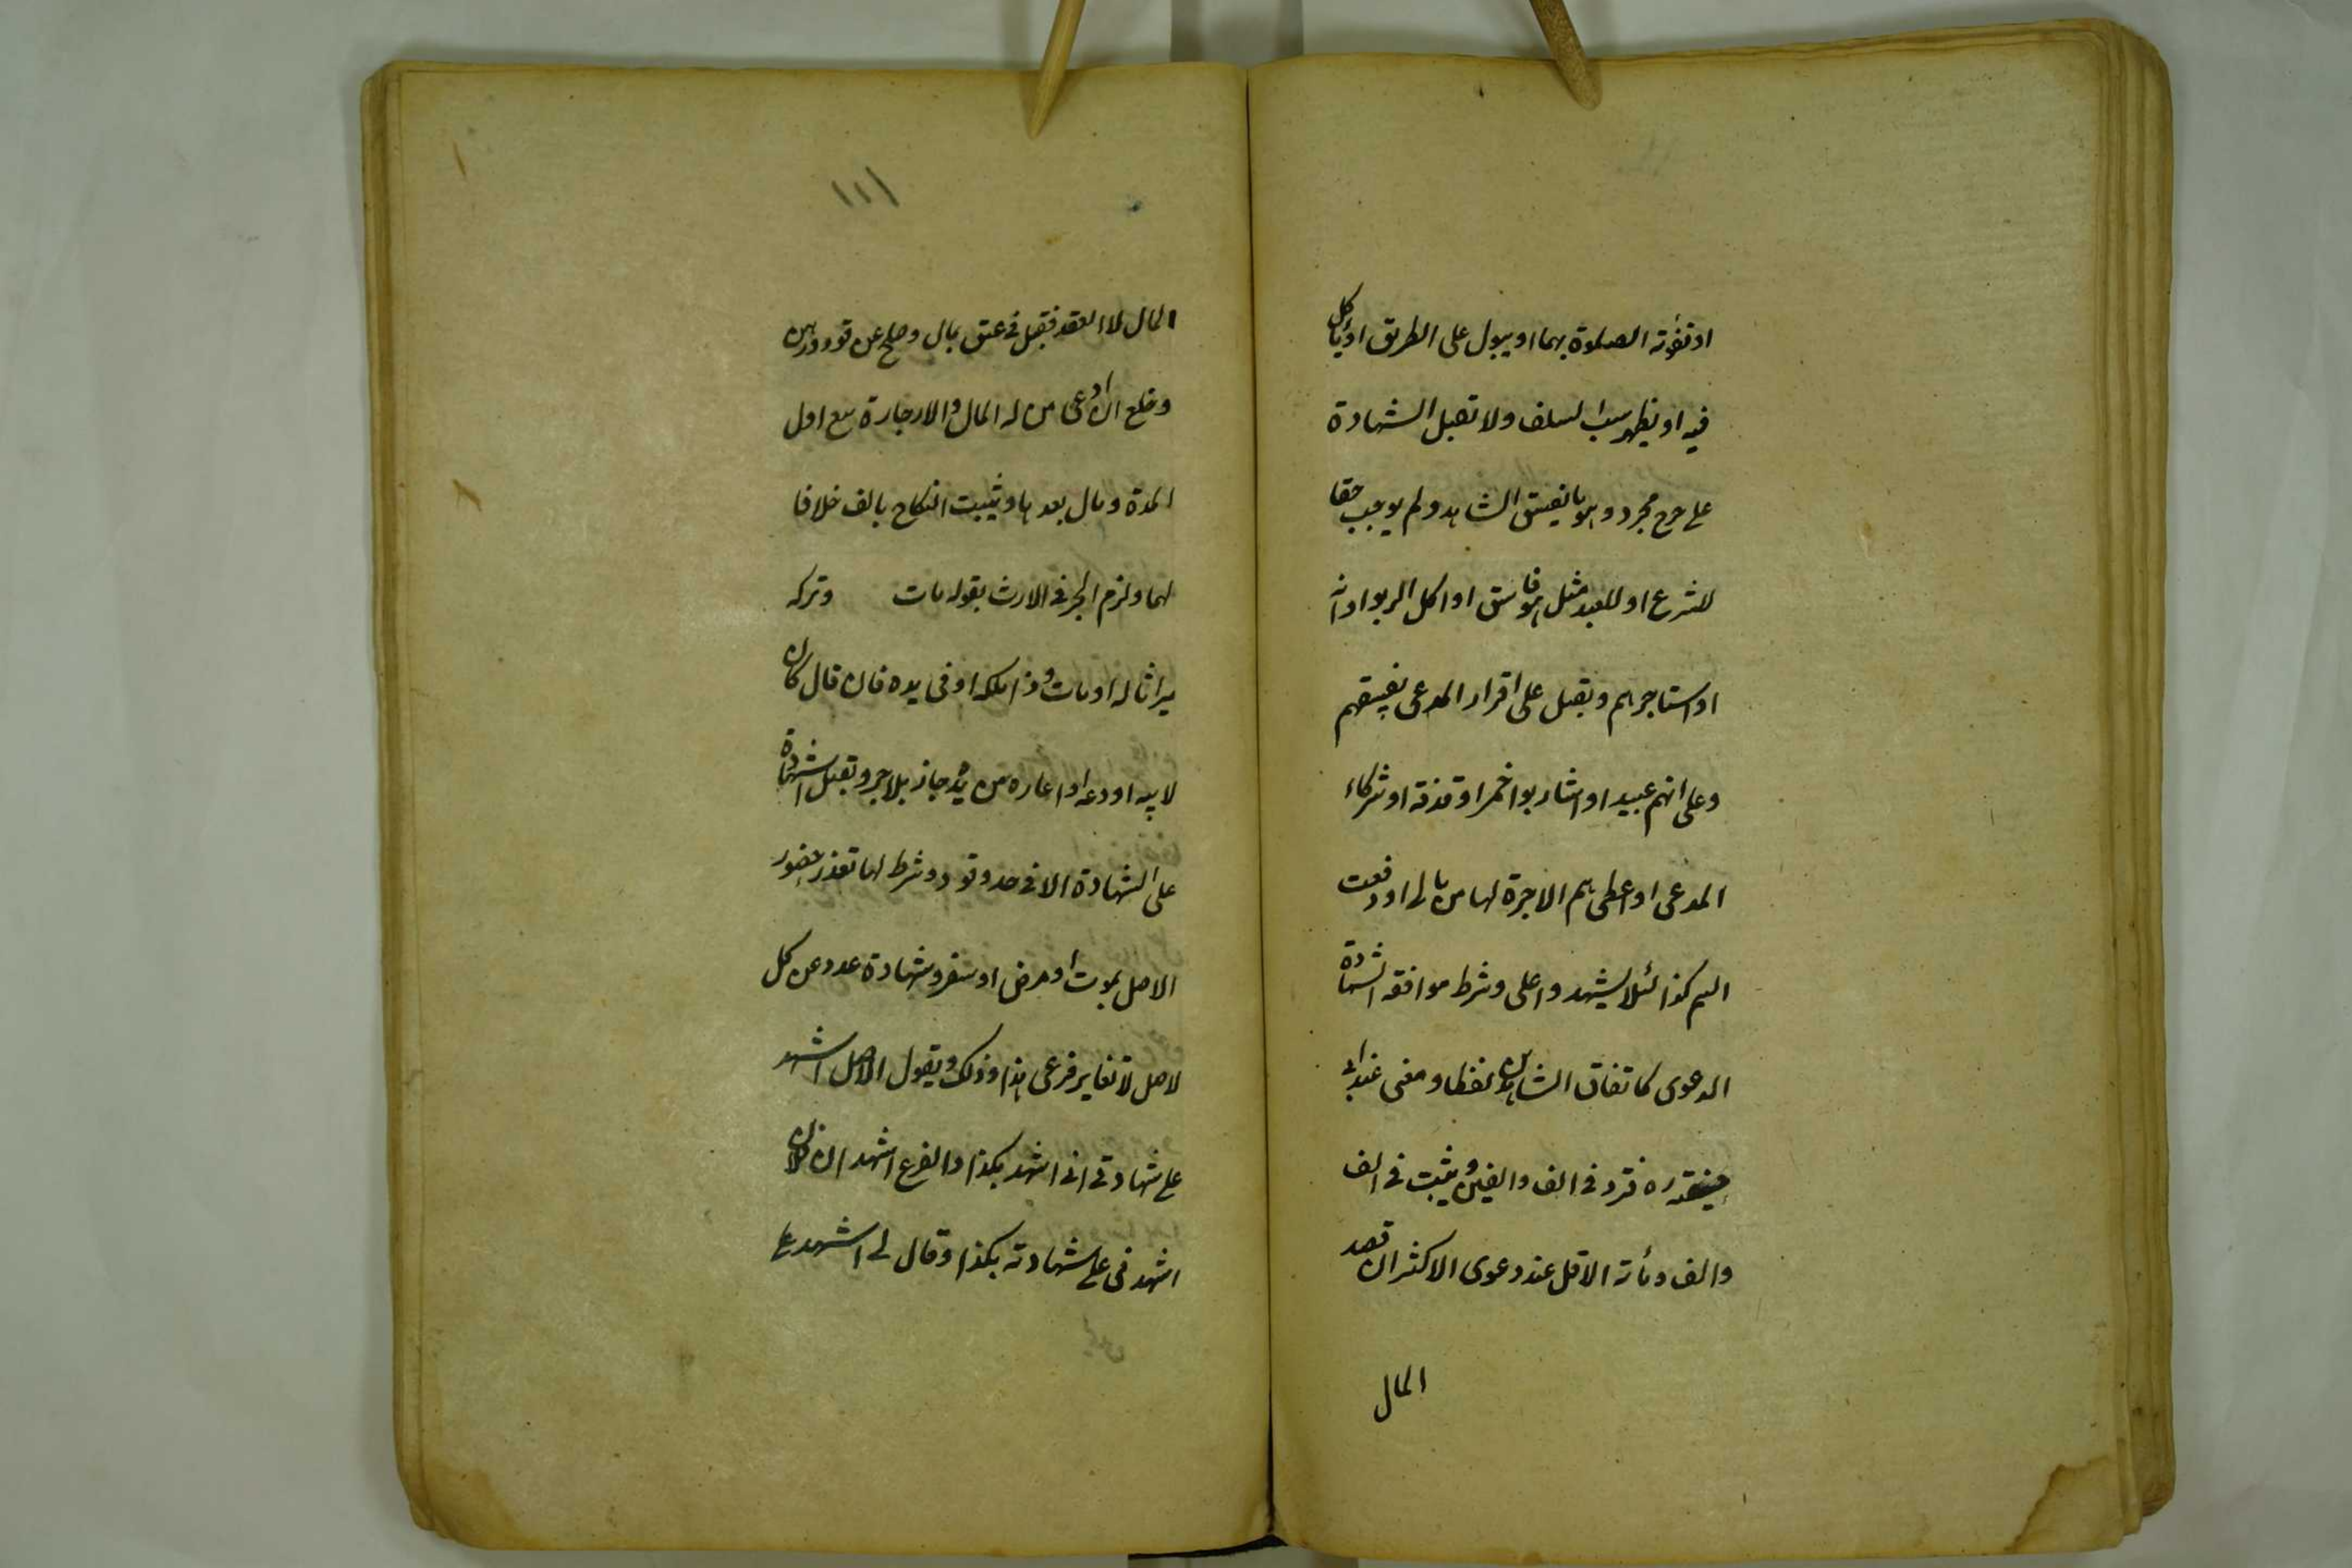 او تفوته الصلوة بهما او يبول على الطريق او يأكل
فيه او يظهر سب السلف ولا تقبل الشهادة
على جرح مجرد وهو ما يفسق الشاهد ولم يوجب حقا
للشرع او للعبد مثل هو فاسق او اكل الربوا او انه
او استاجرهم وتقبل على اقرار المدعى بفسقهم
وعلى انهم عبيد او شاربوا خمر او قذفه او شركاء
المدعى او اعطى هم الاجرة لها من مالى او دفعت
اليهم كذا لئلا يشهدوا على وشرط موافقة الشهادة
الدعوى كاتفاق الشاهدين لفظا ومعنى عند ابى
حنيفة ره فترد فى الف والفين ويثبت فى الف
والف ومأة الاقل عند دعوى الاكثر ان قصد
المال
١١١
المال لا العقد فتقبل فى عتق بمال وصلح عن قود ورهن
وخلع ان ادعى من له المال والاجارة بيع اول
المدة ومال بعدها ويثبت النكاح بالف خلافا
لهما ولزم الجر فى الارث بقوله مات وتركه
ميراثا له او مات وذا ملكه او فى يده فان قال كان
لابيه اودعه او اعاره من يده جاز بلا جر وتقبل الشهادة
على الشهادة الا فى حد وقود وشرط لها تعذر حضور
الاصل بموت او مرض او سفر وشهادة عدد عن كل
لاصل لا تغاير فرعى هذا وذلك ويقول الاصل اشهد
على شهادتى انى اشهد بكذا والفرع اشهد ان فلان
اشهدنى على شهادته بكذا وقال لى اشهد على